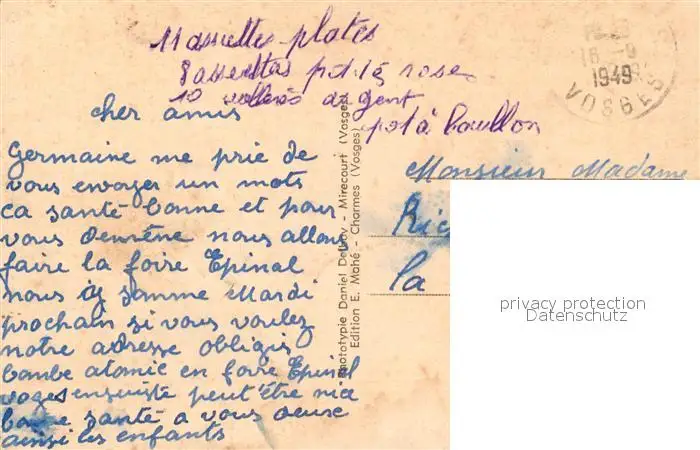 11 assiettes plates
8 assiettes petites rose
10 cuillères argent
pot à bouillon
16 -9
1949
VOSGES
cher amis
Germaine me prie de
vous envoyer un mots
ca santé bonne et pour
vous demême nous allons
faire la foire Epinal
nous iy somme Mardi
prochain si vous voulez
notre adresse obligis
bombe atomic en foire Epinal
voges ensuiste peut'être nice
bonne santé a vous deuse
ainsi les enfants
Phototypie Daniel Delboy - Mirecourt (Vosges)
Edition E. Mahé - Charmes (Vosges)
Monsieur Madame
Ric
La
privacy protection
Datenschutz